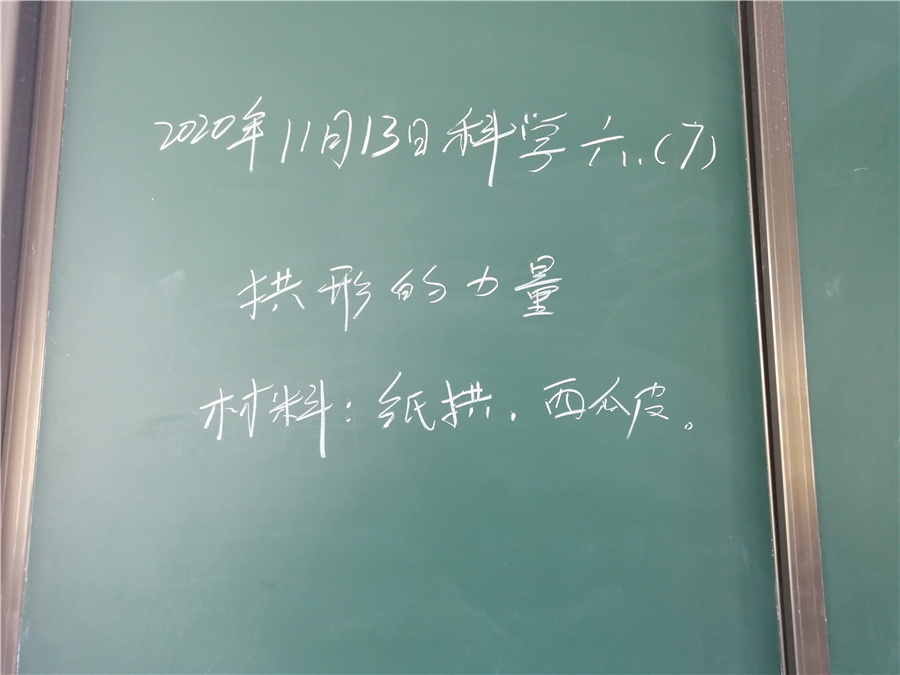 2020年11月13日科学六.(7)
拱形的力量
材料:纸拱.西瓜皮。